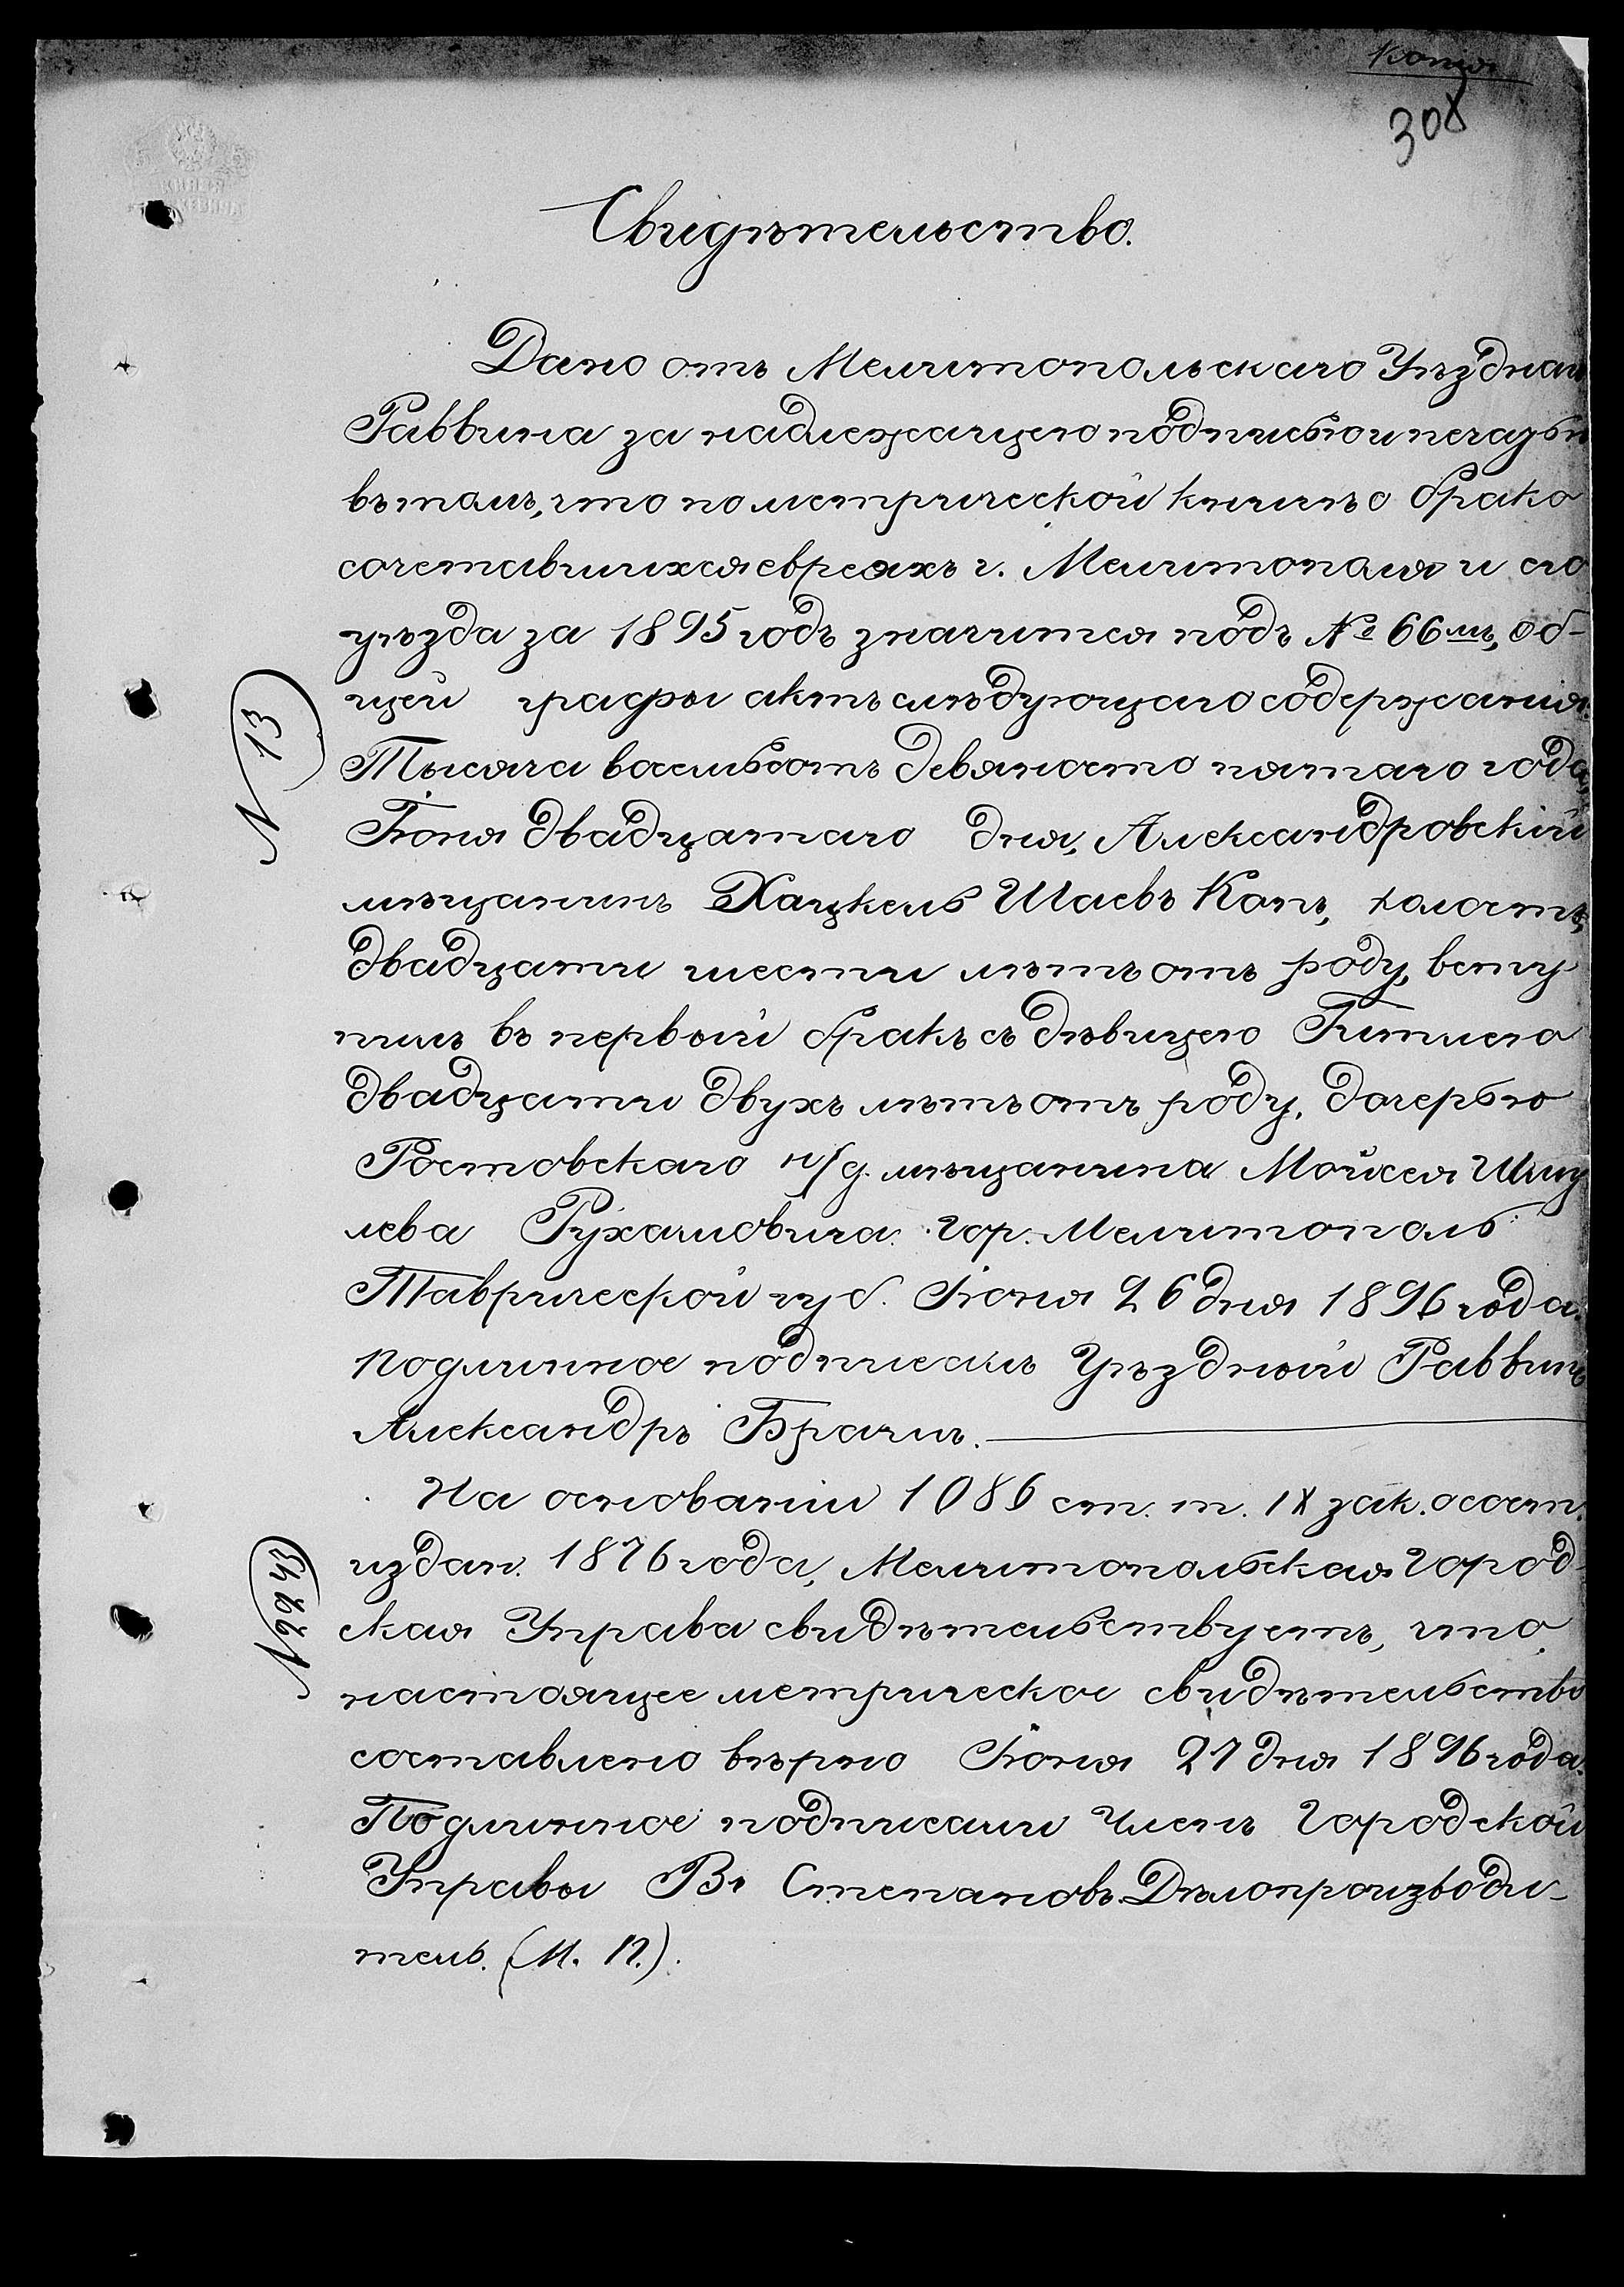 Копія
308
Свидѣтельство.
Дано отъ Мелитопольскаго Уѣзднаго
Раввина за надлежащею подписью и печатью
въ томъ, что по метрической книгѣ о брако
сочетавшихся евреяхъ г. Мелитополя и его
уѣзда за 1895 годъ значится подъ № 66мъ, об-
щей графы актъ слѣдующаго содержанія:
Тысяча восемьсотъ девяносто пятаго года
Іюня двадцатаго дня, Александровскій
мѣщанинъ Хацкель Шаевъ Копъ, холостъ,
двадцати шести лѣтъ отъ роду, всту
пилъ въ первый бракъ съ дѣвицею Гитлею
двадцати двухъ лѣтъ отъ роду, дочерью
Ростовскаго н/д. мѣщанина Мойсея Шму
лева Рухамовича. Гор. Мелитополь
Таврической губ. Іюня 26 дня 1896 года.
Подлинное подписалъ Уѣздный Раввинъ
Александръ
На основаніи 1086 ст. т. IX зак. о сост.
издан. 1876 года, Мелитопольская Город-
ская Управа свидѣтельствуетъ, что
настоящее метрическое свидѣтельство
составлено вѣрно Іюня 27 дня 1896 года.
Подлинное подписали Членъ Городской
Управы Вл Степановъ Дѣлопроизводи-
тель. (М. П.).
N 13
N 2243